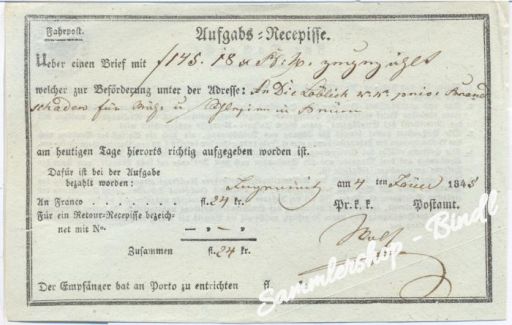 Fahrpost.
Aufgabs-Recepisse.
Ueber einen Brief mit f 145. 18 x
welcher zur Beförderung unter der Adresse: An Die Löblich k. k. priv. Brand
schaden für in Brünn
am heutigen Tage hierorts richtig aufgegeben worden ist.
Dafür ist bei der Aufgabe
bezahlt worden:
am 4 ten 1845
An Franco . . . . . . . fl. 24 kr.
Pr. k. k. Postamt.
Für ein Retour-Recepisse bezeich-
net mit No. — „ — „ —
Zusammen fl. 24 kr.
Der Empfänger hat an Porto zu entrichten fl.
Sammlershop - Bindl